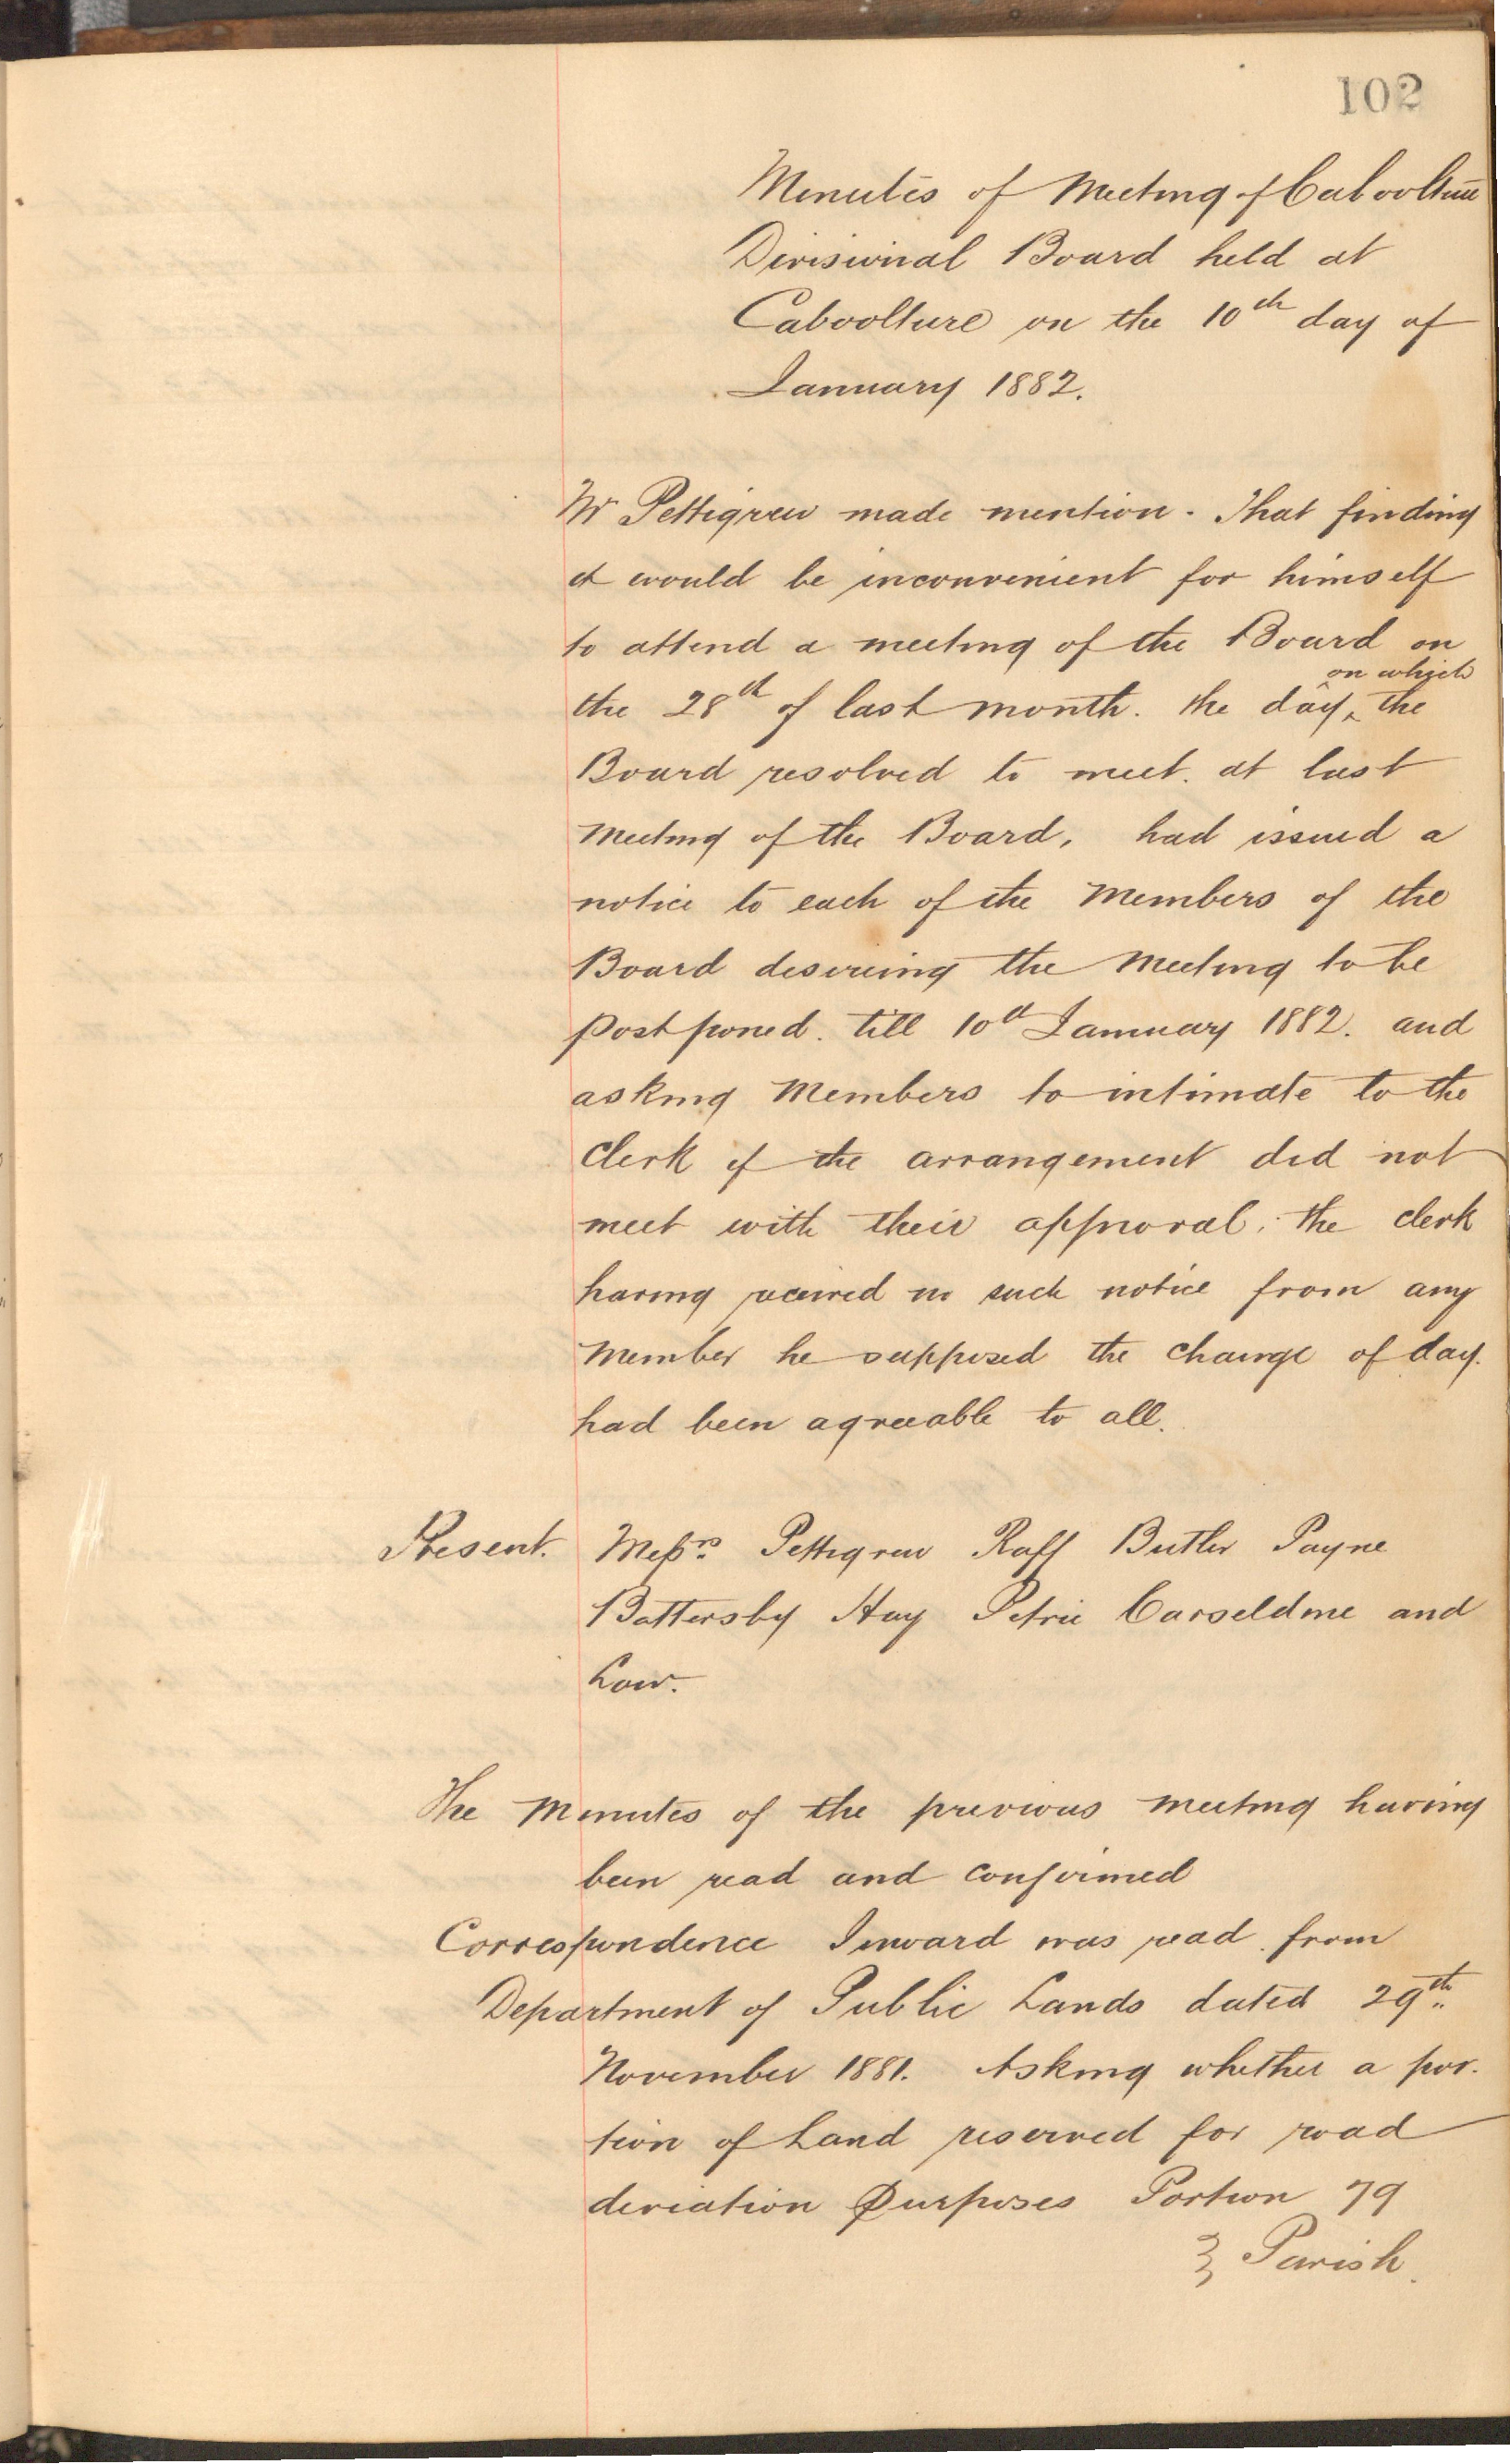 102
Minutes of Meeting of Caboolture
Divisional Board held at
Caboolture on the 10th day of
January 1882.
Mr Pettigrew made mention. That finding
it would be inconvenient for himself
to attend a meeting of the Board on
the 28th of last month. the day on which the
Board resolved to meet. at last
Meeting of the Board, had issued a
notice to each of the Members of the
Board desireing the Meeting to be
postponed. till 10th January 1882. and
asking Members to intimate to the
Clerk if the arrangement did not
meet with their approval. the clerk
having received no such notice from any
Member he supposed the change of day.
had been agreeable to all.
Present. Messrs. Pettigrew Raff Butler Payne
Battersby Hay Petrie Carseldine and
Low.
The Minutes of the previous meeting having
been read and confirmed
Correspondence Inward was read. from
Department of Public Lands dated 29th
November 1881. Asking whether a por-
tion of Land reserved for road
deviation Purposes Portion 79
Parish